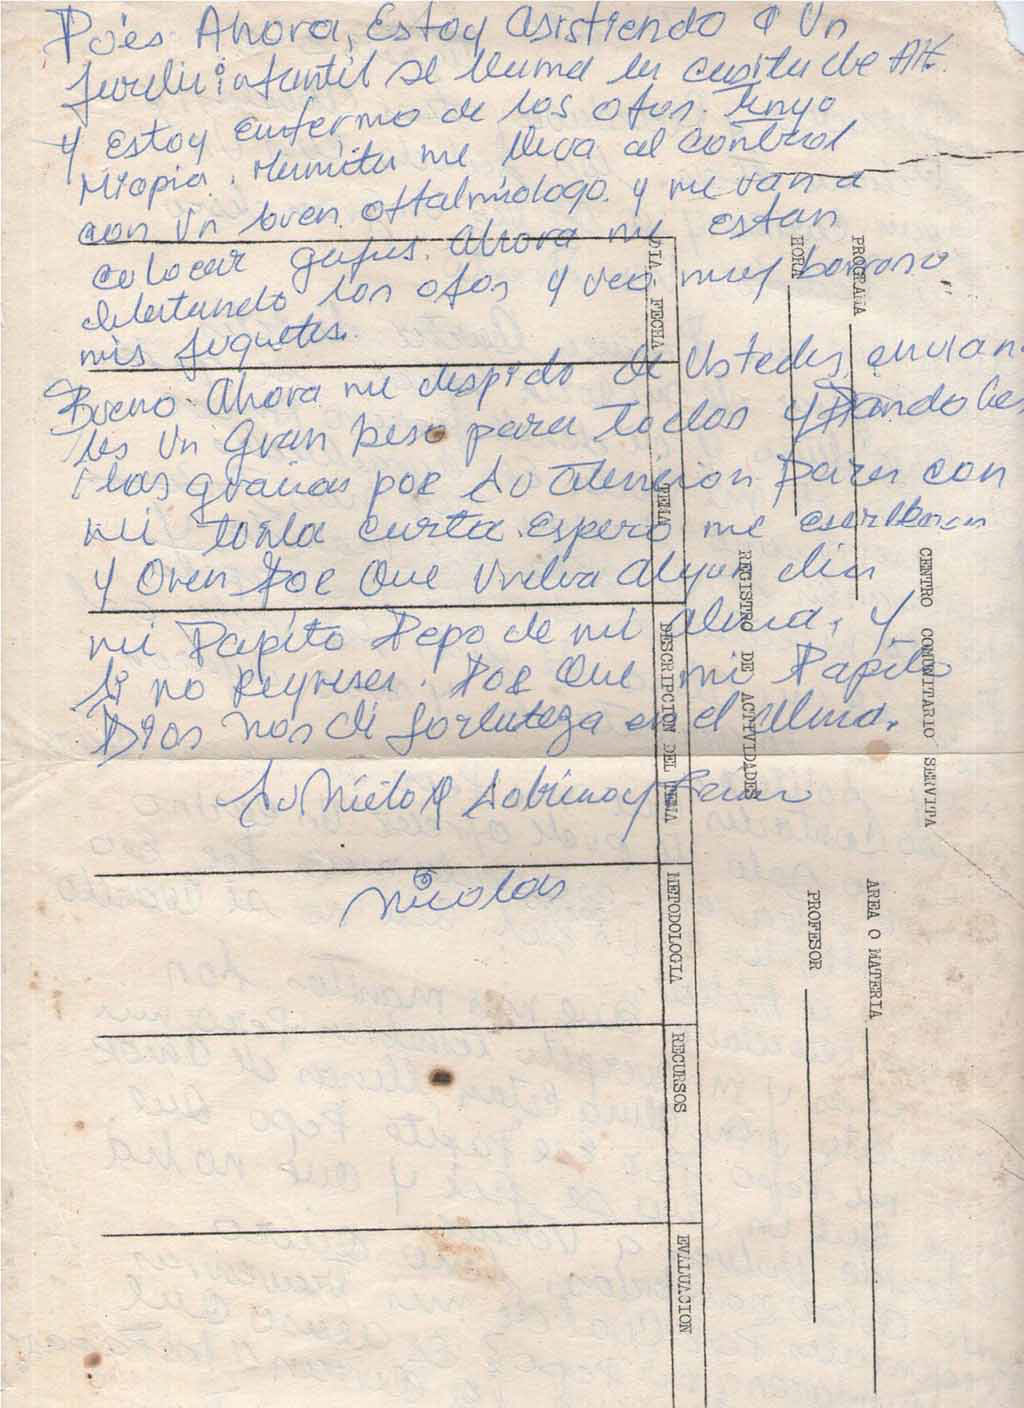 Pués Ahora, Estoy asistiendo a Un
Jardin infantil se llama la casita de
Y Estoy enfermo de los ojos. tengo
Miopia. Mamita me lleva al control
con Un buen oftalmologo. y me van a
colocar gafas. Ahora me estan
dilatando los ojos y veo muy borroso
mis juguetes.
Bueno Ahora me despido de Ustedes, envian-
les Un gran beso para todos y Dandoles
las gracias por su atencion para con
mi tonta carta. Espero me escriban
y Oren por que vuelva algun dia
mi Papito Pepo de mi alma, y
si no regresa. Por que mi Papito
Dios nos dé fortaleza en el alma.
Su Nieto y Sobrino y
Nicolas
CENTRO COMUNITARIO SERVITA
REGISTRO DE ACTIVIDADES
PROGRAMA
AREA O MATERIA
HORA
PROFESOR
DIA - FECHA
TEMA
DESCRIPCION DEL TEMA
METODOLOGIA
RECURSOS
EVALUACION